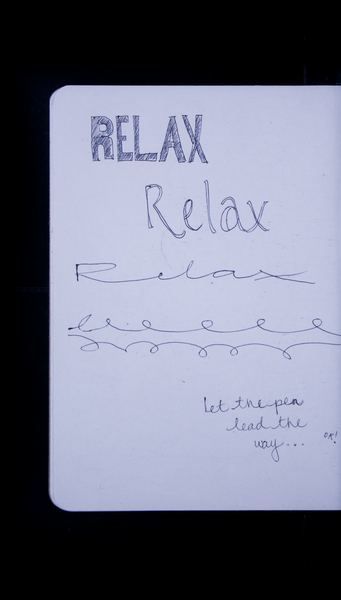 RELAX
Relax
Relax
let the pen
lead the
way...
OK!